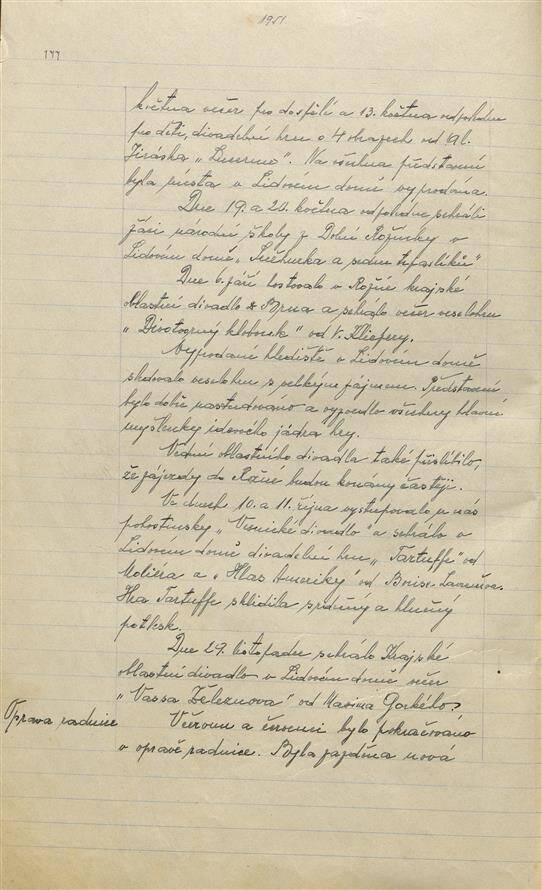 1951.
května večer pro dospělé a 13. května odpoledne
pro děti, divadelní hru o 4 obrazech od Al.
Jiráska „Lucerna". Na všechna představení
byla místa v Lidovém domě vyprodána.
Dne 19. a 20. května odpoledne sehráli
žáci národní školy z Dolní Rožínky v
Lidovém domě „Sněhurka a sedm trpaslíků"
Dne 6. září hostovalo v Rožné krajské
oblastní divadlo z Brna a sehrálo večer veselohru
„Divotvorný klobouk" od V. Klicpery.
Vyprodané hlediště v Lidovém domě
sledovalo veselohru s velkým zájmem. Představení
bylo dobře nastudováno a vyzvedlo všechny hlavní
myšlenky ideového jádra hry.
Vedení oblastního divadla také přislíbilo,
že zájezdy do Rožné budou konány častěji.
Ve dnech 10. a 11. října vystupovalo u nás
pohostinsky „Vesnické divadlo" a sehrálo v
Lidovém domě divadelní hru „Tartuffe" od
Moliéra a „Hlas Ameriky" od Borise Lavreněva.
Hra Tartuffe sklidila srdečný a hlučný
potlesk.
Dne 29. listopadu sehrálo Krajské
oblastní divadlo v Lidovém domě večer
„Vassa Železnova" od Maxima Gorkého.
Oprava radnice
V a červenci bylo pokračováno
v opravě radnice. Byla zajeděna nová